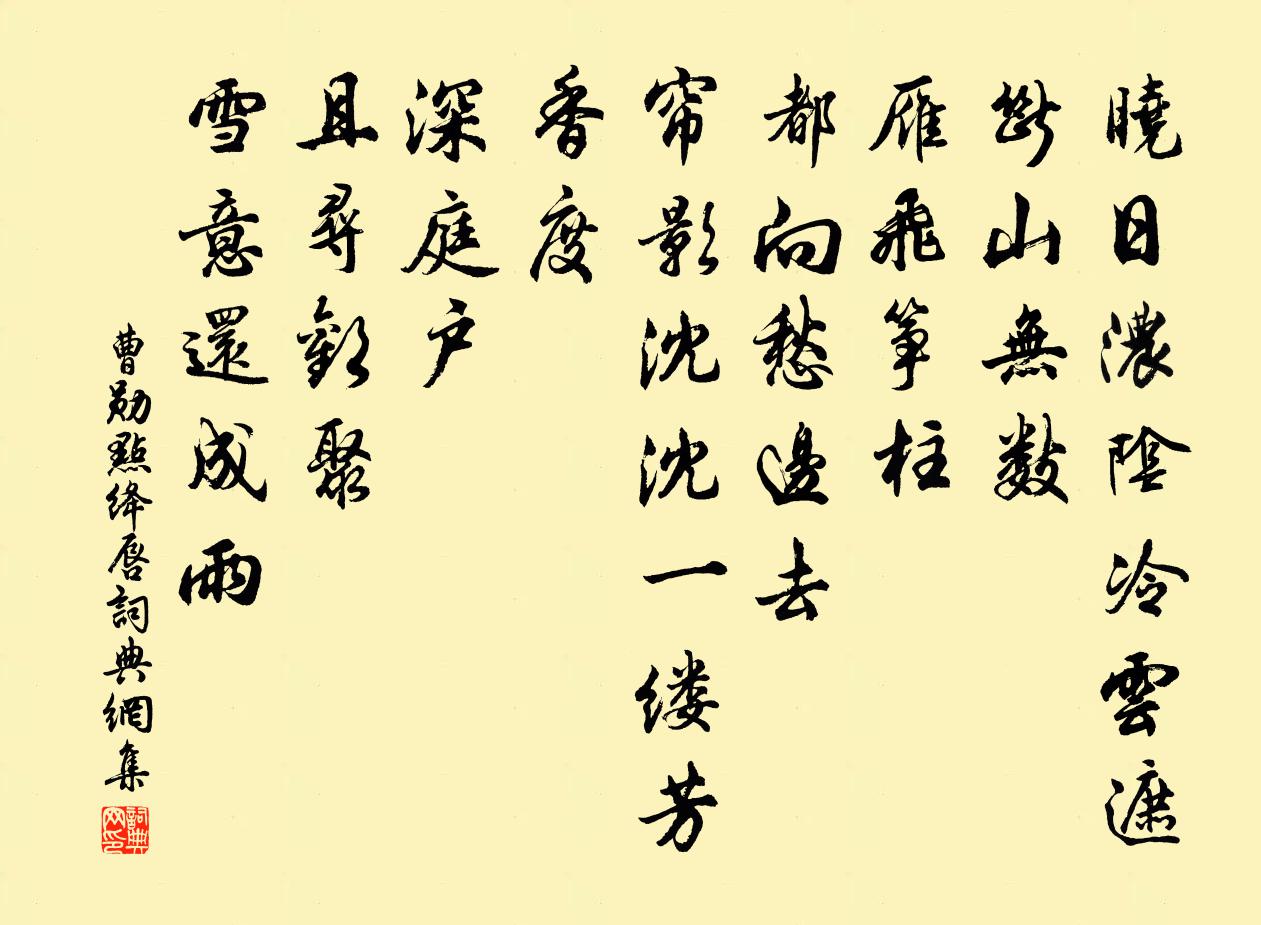 曉日濃陰冷雲遮
斷山無數
雁飛筝柱
都向愁邊去
帘影沈沈一缕芳
香度
深庭户
且尋歡聚
雪意還成雨
曹勛點絳唇詞典網集
詞典网印